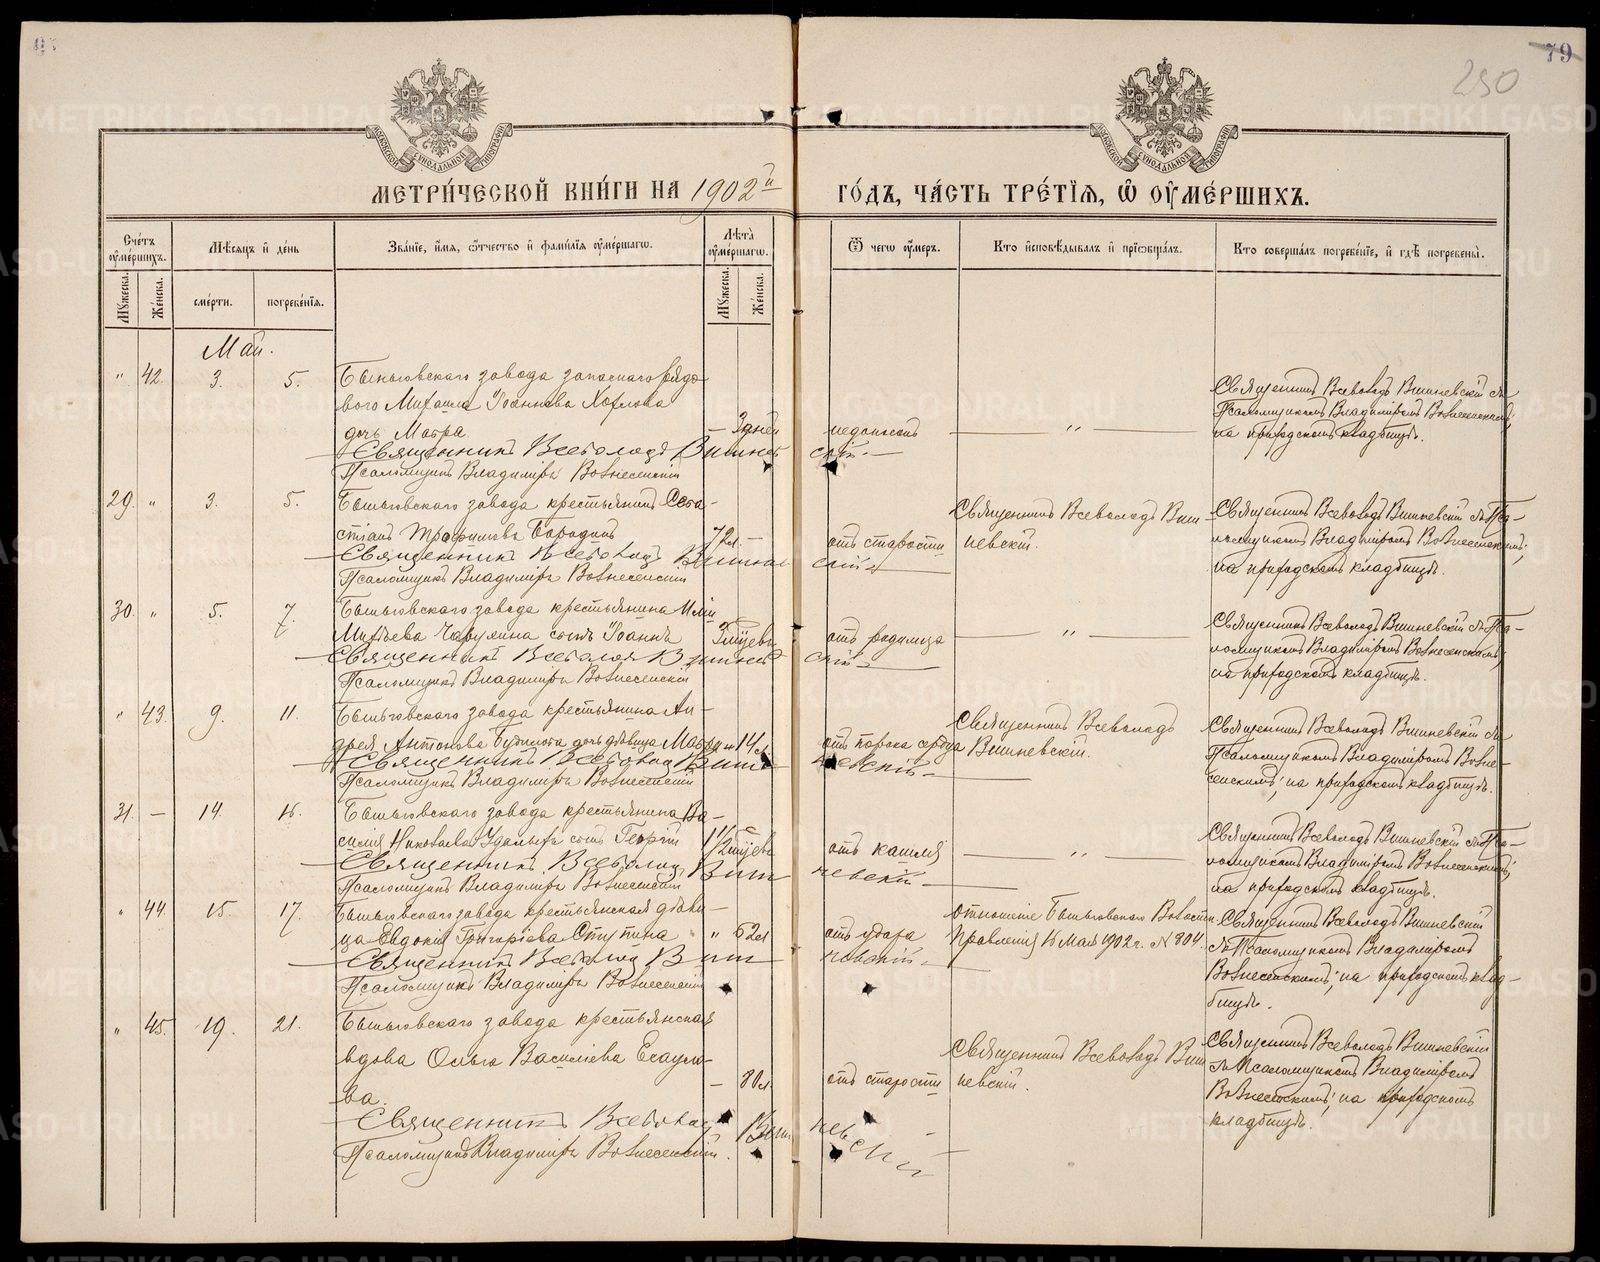 79
250
МОСКОВСКОЙ СѴНОДАЛЬНОЙ ТИПОГРАФІИ
МОСКОВСКОЙ СѴНОДАЛЬНОЙ ТИПОГРАФІИ
МЕТРИ́ЧЕСКОЙ КНИ́ГИ НА 1902й
ГО́ДЪ, ЧА́СТЬ ТРЕ́ТІѦ, Ѡ ОУМЕ́РШИХЪ.
Сче́тъ оумершихъ.
Мѣсяцъ и день
Зва́ніе, имя, отчество и фами́лія оумершаго.
Лѣта оумершаго.
Мужеска.
Женска.
смерти.
погребенія.
Мужеска.
Женска.
Ѿ чего оумеръ.
Кто исповѣдывалъ и пріобщалъ.
Кто совершалъ погребеніе, и гдѣ погребены.
Май.
" 42. 3. 5. Быньговскаго завода запаснаго рядо-
вого Михаила Іоаннова Хохлова
дочь Мавра — 3 дней
Священникъ Всеволодъ Вишнев
скій. —
Псаломщикъ Владиміръ Вознесенскій
— " —
Священникъ Всеволодъ Вишневскій съ
Псаломщикомъ Владиміромъ Вознесенскимъ;
на приходскомъ кладбищѣ.
29. " 3. 5. Быньговскаго завода крестьянинъ Сева-
стіанъ Трофимовъ Бородинъ 72 л. —
Священникъ Всеволодъ Вишнев
скій —
Псаломщикъ Владиміръ Вознесенскій
отъ старости
Священникъ Всеволодъ Виш-
невскій.
Священникъ Всеволодъ Вишневскій съ Пса-
ломщикомъ Владиміромъ Вознесенскимъ;
на приходскомъ кладбищѣ.
30. " 5. 7. Быньговскаго завода крестьянина Иліи
сынъ Іоаннъ
Священникъ Всеволодъ Вишнев
скій —
Псаломщикъ Владиміръ Вознесенскій
отъ родимца
— " —
Священникъ Всеволодъ Вишневскій съ Пса-
ломщикомъ Владиміромъ Вознесенскимъ;
на приходскомъ кладбищѣ.
" 43. 9. 11. Быньговскаго завода крестьянина Ан-
дрея Антонова дочь дѣвица Мавра " 14 л.
Священникъ Всеволодъ Виш
невскій —
Псаломщикъ Владиміръ Вознесенскій
отъ порока сердца
Священникъ Всеволодъ
Вишневскій.
Священникъ Всеволодъ Вишневскій съ
Псаломщикомъ Владиміромъ Возне-
сенскимъ; на приходскомъ кладбищѣ.
31. — 14. 16. Быньговскаго завода крестьянина Ва-
силія Николаева сынъ Георгій
Священникъ Всеволодъ Виш
невскій —
Псаломщикъ Владиміръ Вознесенскій
отъ кашля
— " —
Священникъ Всеволодъ Вишневскій съ Пса-
ломщикомъ Владиміромъ Вознесенскимъ;
на приходскомъ кладбищѣ.
" 44. 15. 17. Быньговскаго завода крестьянская дѣви-
ца Евдокія Григоріева Ступина " 62 л
Священникъ Всеволодъ Виш
невскій —
Псаломщикъ Владиміръ Вознесенскій
отъ удара
отношеніе Быньговскаго Волостн.
Правленія 16 Мая 1902 г. № 804.
Священникъ Всеволодъ Вишневскій
съ Псаломщикомъ Владиміромъ
Вознесенскимъ; на приходскомъ клад-
бищѣ.
" 45. 19. 21. Быньговскаго завода крестьянская
вдова Ольга Василіева Есауло-
ва. — 80 л.
Священникъ Всеволодъ Виш
невскій
Псаломщикъ Владиміръ Вознесенскій.
отъ старости
Священникъ Всеволодъ Виш
невскій.
Священникъ Всеволодъ Вишневскій
съ Псаломщикомъ Владиміромъ
Вознесенскимъ; на приходскомъ
кладбищѣ.